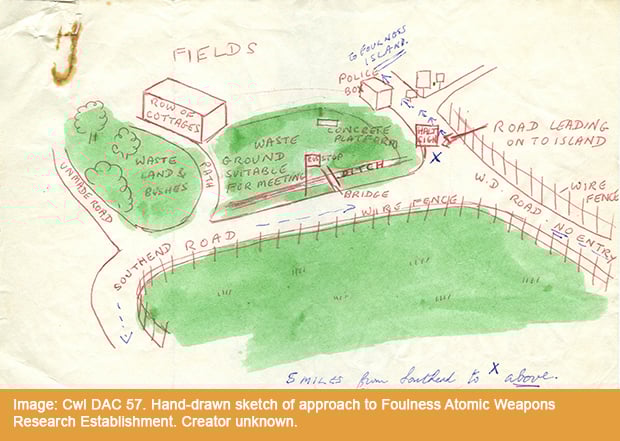 FIELDS
TO FOULNESS
ISLAND.
POLICE
BOX
ROW OF
COTTAGES
HALT
SIGN
ROAD LEADING
ON TO ISLAND
WASTE
GROUND
SUITABLE
FOR MEETING
CONCRETE
PLATFORM
BUS STOP
DITCH
BRIDGE
WASTE
LAND &
BUSHES
PATH
UNMADE ROAD
X
W.D. ROAD. NO ENTRY
WIRE
FENCE
WIRE FENCE
SOUTHEND ROAD
5 MILES from Southend to X above.
Image: Cwl DAC 57. Hand-drawn sketch of approach to Foulness Atomic Weapons
Research Establishment. Creator unknown.